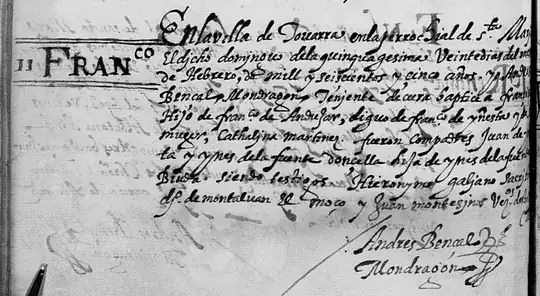 11 FRAN.co
En la villa de Tovarra en la parrochial de S.ta Mar
El dicho domingo de la quinquagesima Veinte dias del m
de Hebrero, de mill y seiscientos y cinco años, yo Andres
Bencal Mondragon Teniente de cura baptice a fran.co
Hijo de fran.co de Andujar, digo de fran.co de yniesta y
muger, Cathalina martinez fueron compadres Juan de
ta y ynes de la fuente doncella hija de ynes de la fuente
Biuda siendo testigos Hieronymo galiano
de montaluan moço y Juan montesinos Vez.os
Andres Bencal
Mondragon